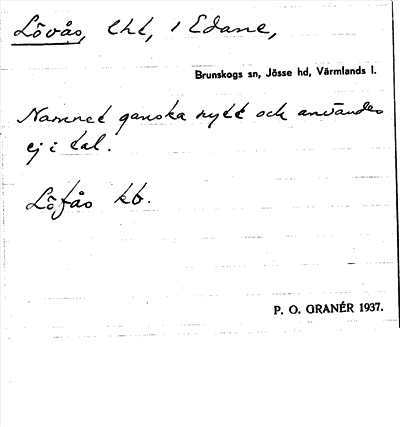 Lövås, lht, i Edane,
Brunskogs sn, Jösse hd, Värmlands l.
Namnet ganska nytt och användes
ej i tal.
Löfås kb.
P. O. GRANÉR 1937.